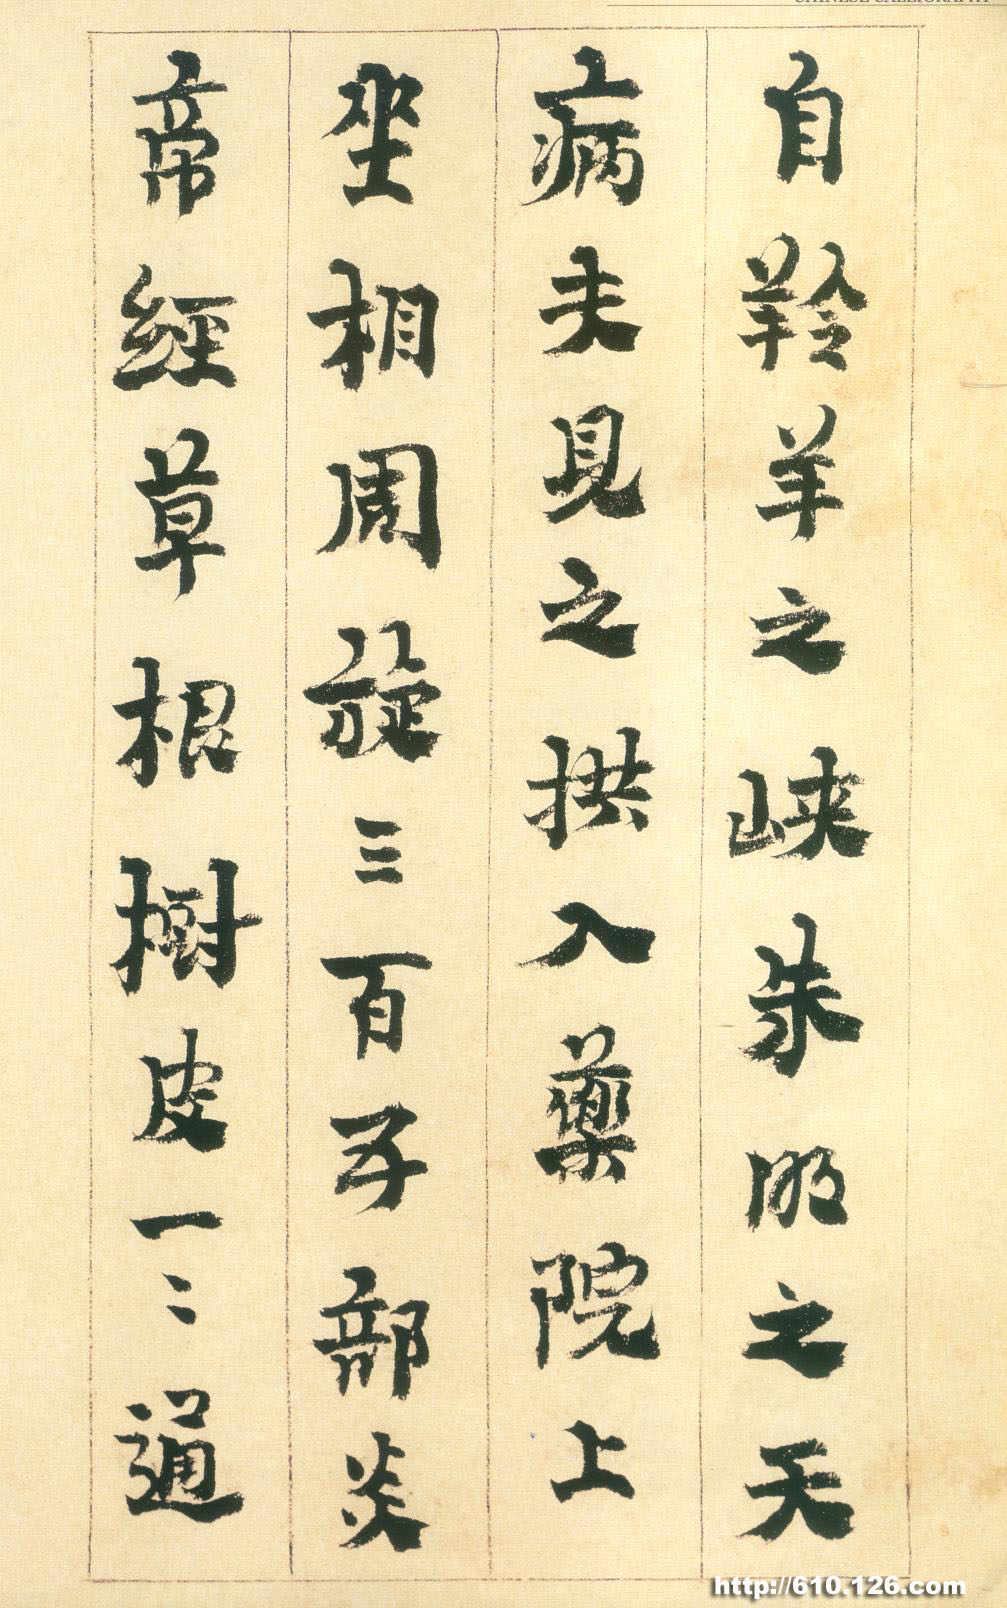 CHINESE CALLIGRAPHY
自羚羊之峽朱明之天
病夫見之拱入藥院上
坐相周旋三百子部炎
帝經草根樹皮一〻通
http://610.126.com